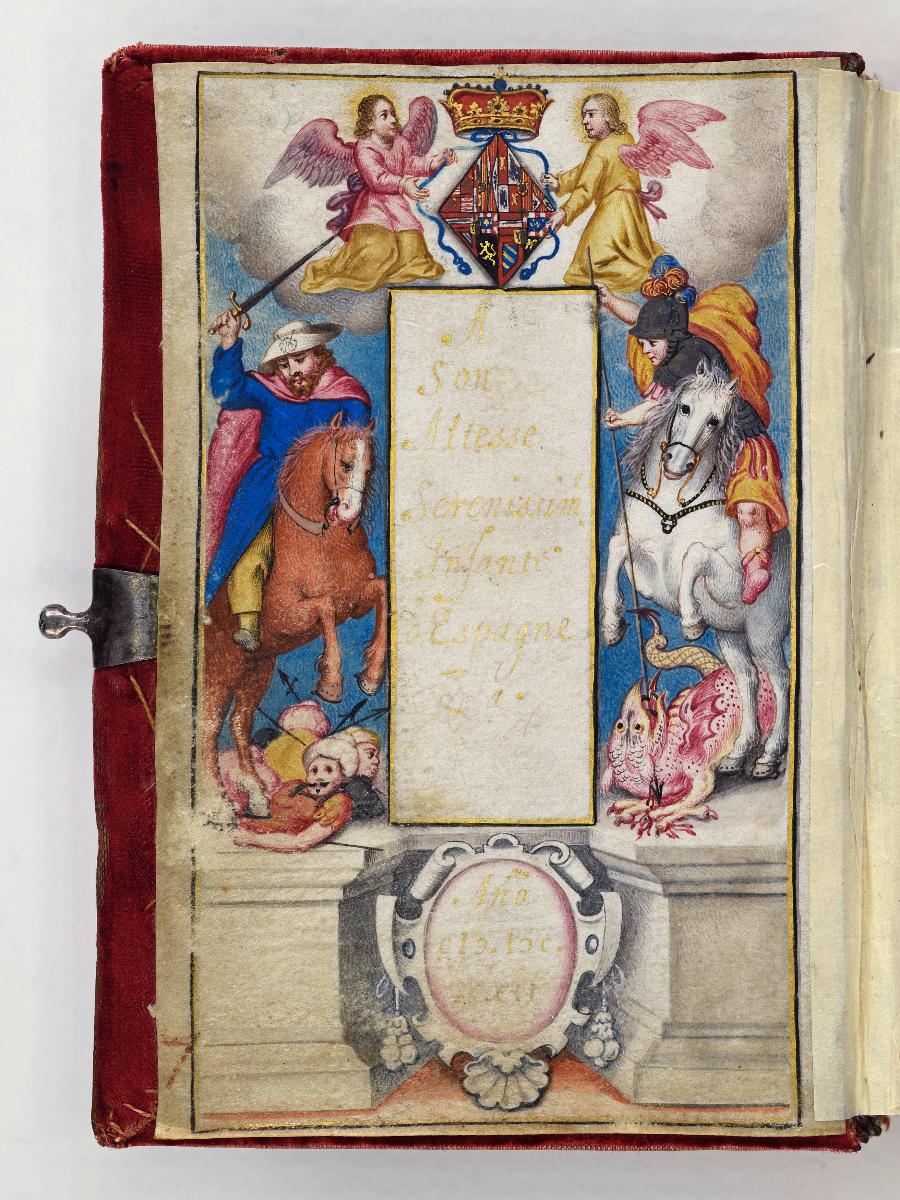 A
Son
Altesse
Serenissime
Infante
d'Espagne
&c.
Anno
cIɔ.Iɔc.
XXII